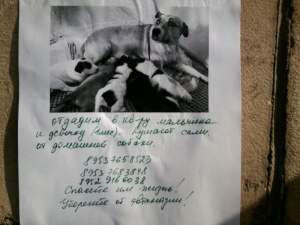 отдадим в кв-ру мальчика
и девочку (1мес). Кушают сами.
от домашней собаки.
89537658523
89537683848
8952 9166038
Спасите им жизнь!
Уберегите от догхантии!